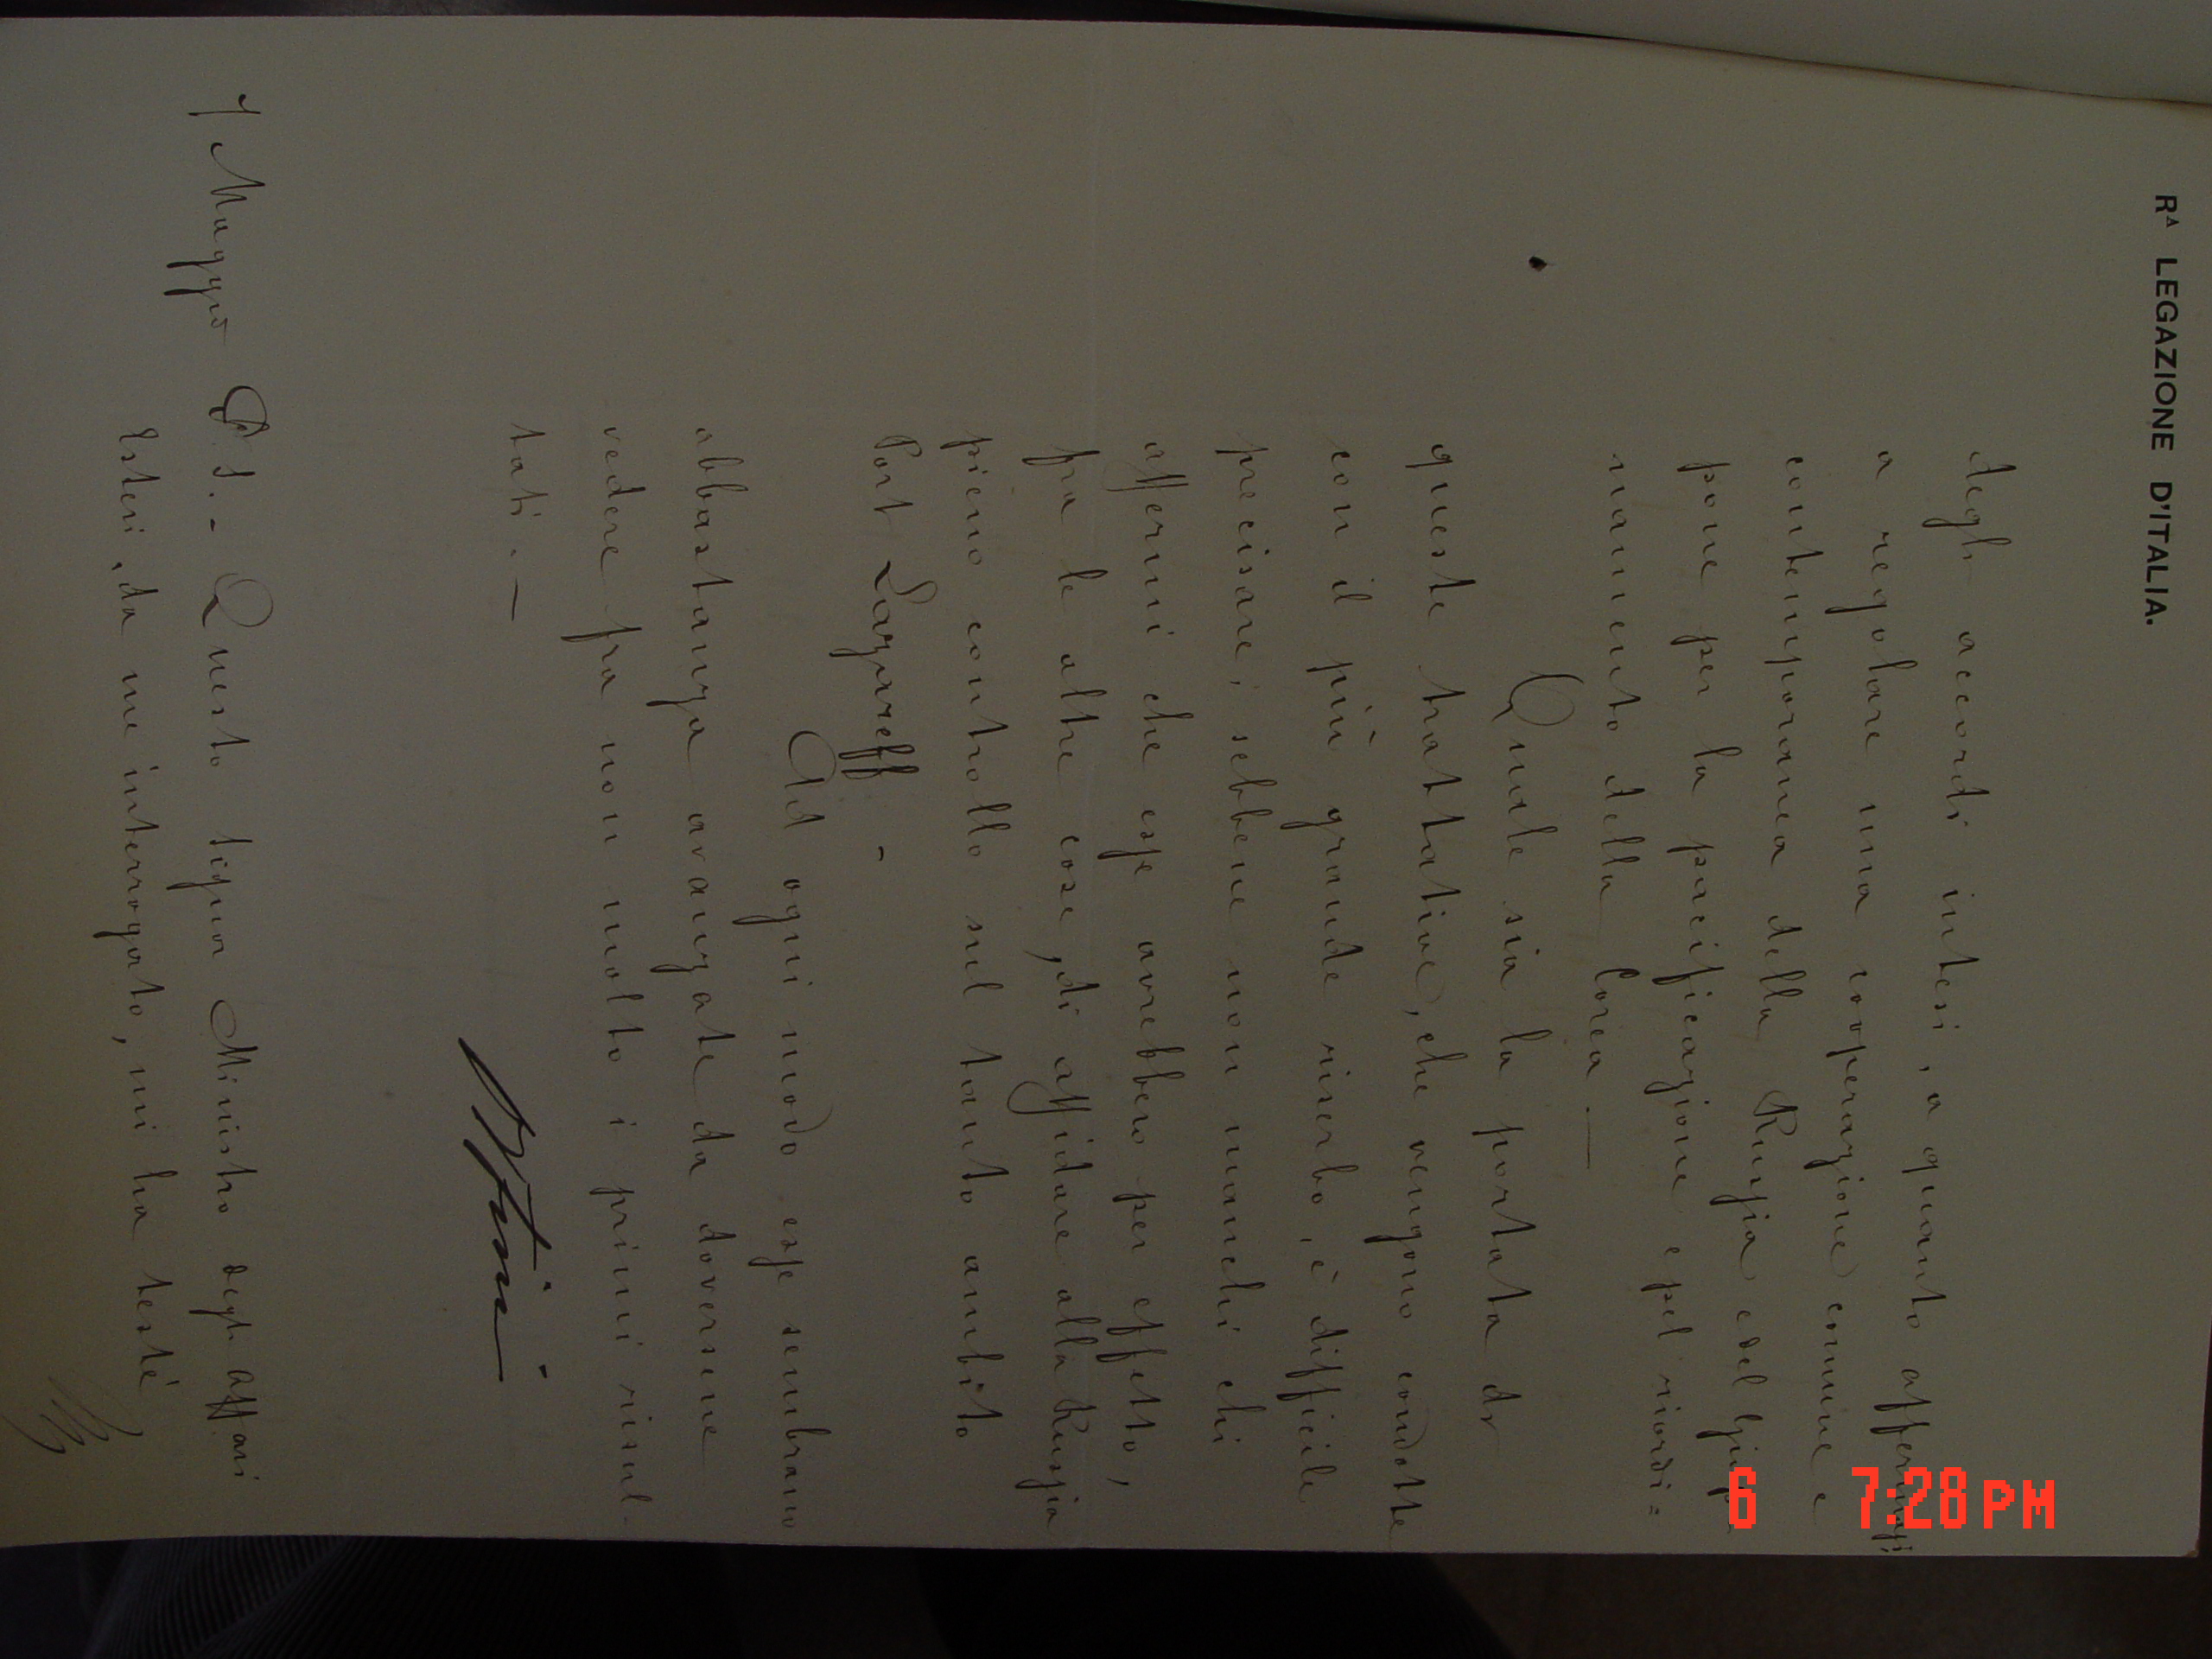 Rᴬ LEGAZIONE D'ITALIA.
degli accordi intesi, a quanto affermasi,
a regolare una cooperazione comune e
contemporanea della Russia e del Giap-
pone per la pacificazione e pel riordi=
namento della Corea. —
Quale sia la portata di
queste trattative, che vengono condotte
con il più grande riserbo, è difficile
precisare; sebbene non manchi chi
affermi che esse avrebbero per effetto,
fra le altre cose, di affidare alla Russia
pieno controllo sul tanto ambito
Port Lazareff -
Ad ogni modo esse sembrano
abbastanza avanzate da doversene
vedere fra non molto i primi risul-
tati. —
7 Maggio P.S. - Questo signor Ministro degli Affari
Esteri, da me interrogato, mi ha testé
6 7:28 PM